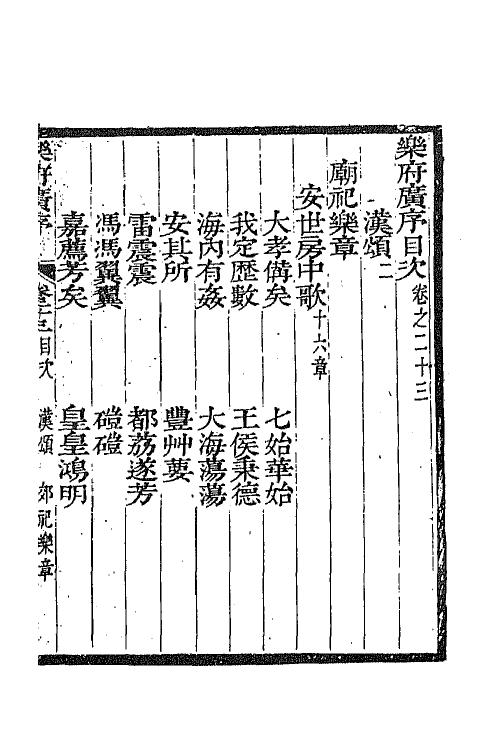 樂府廣序目次 卷之二十三
漢頌二
廟祀樂章
安世房中歌 十六章
大孝僃矣 七始華始
我定歷數 王侯秉德
海內有姦 大海蕩蕩
安其所 豐艸葽
雷震震 都荔遂芳
馮馮翼翼 磑磑
嘉薦芳矣 皇皇鴻明
樂府廣序 卷二十三目次 漢頌 郊祀樂章